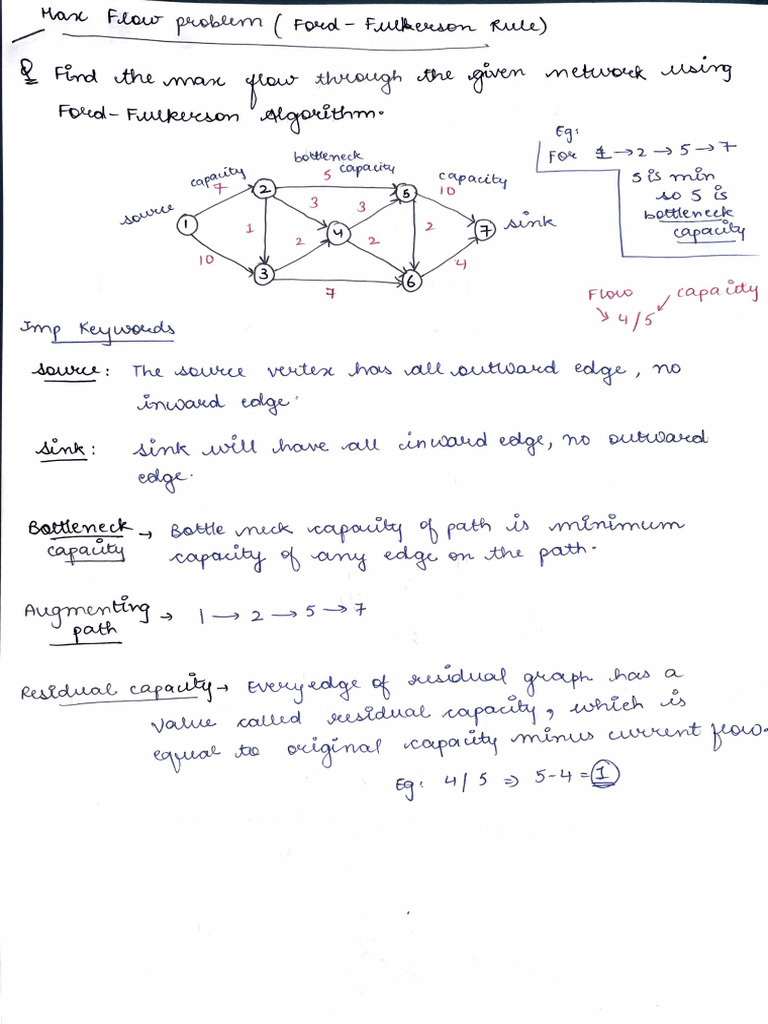 Max Flow problem (Ford-Fulkerson Rule)
Q Find the max flow through the given network using
Ford-Fulkerson Algorithm.
Eg:
For 1 → 2 → 5 → 7
5 is min
so 5 is
bottleneck
capacity
capacity
7
bottleneck
capacity
5
capacity
10
source
1
2
5
3
3
1
4
7
sink
2
2
2
10
3
6
4
7
Flow
capacity
4/5
Imp Keywords
source: The source vertex has all outward edge, no
inward edge.
sink: sink will have all inward edge, no outward
edge.
Bottleneck → Bottle neck capacity of path is minimum
capacity capacity of any edge on the path.
Augmenting → 1 → 2 → 5 → 7
path
Residual capacity → Every edge of residual graph has a
value called residual capacity, which is
equal to original capacity minus current flow.
Eg: 4/5 ⇒ 5-4 = 1